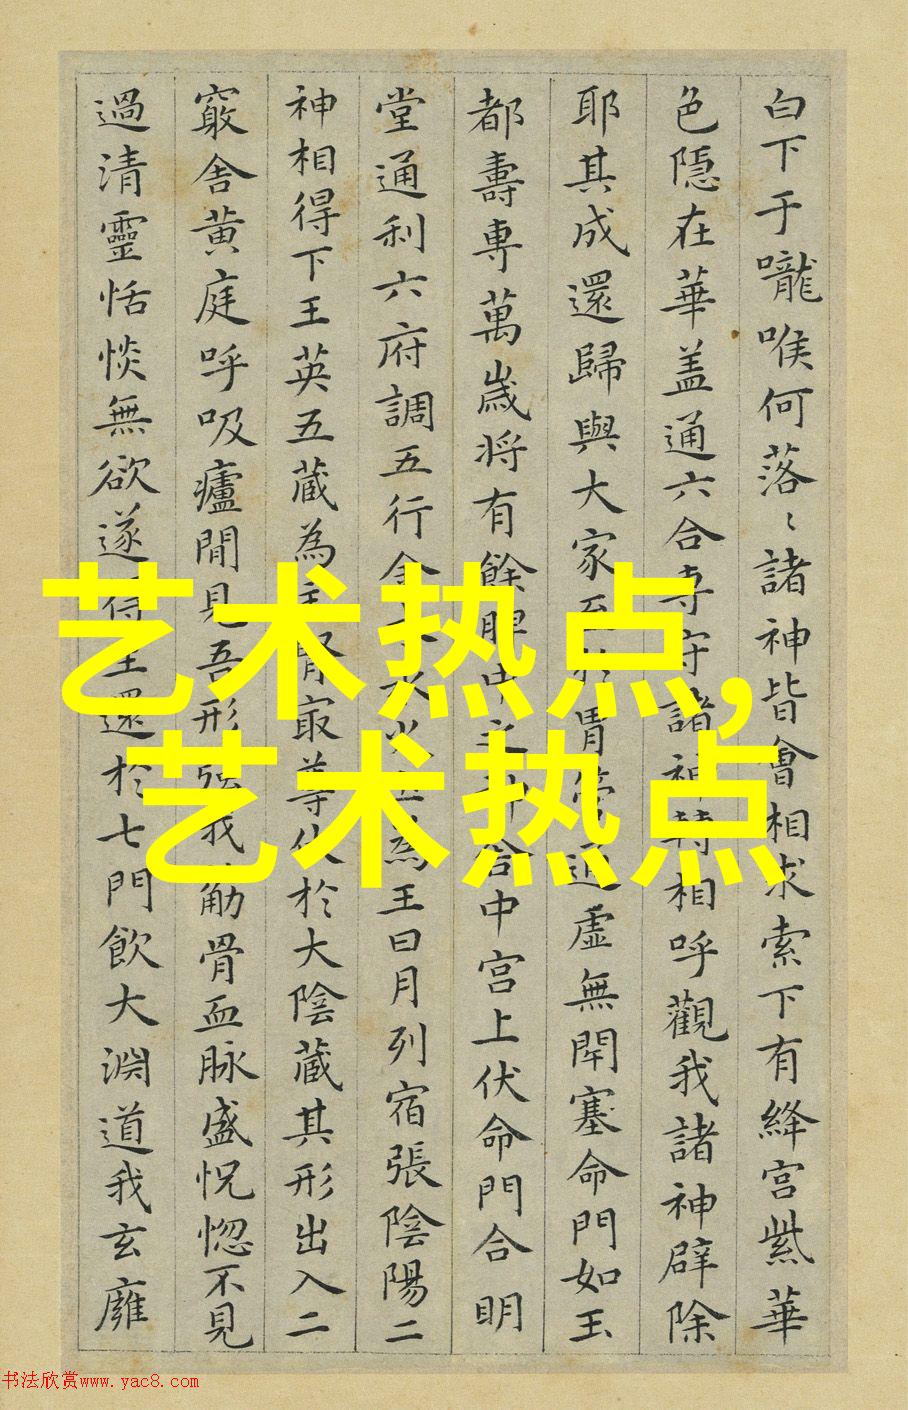 白下于嚨喉何落〻諸神皆會相求索下有絳宫紫華
色隱在華盖通六合專守諸神轉相呼觀我諸神辟除
耶其成還歸與大家至於胃管通虛無閉塞命門如玉
都壽專萬歲将有餘脾中之神舍中宫上伏命門合明
堂通利六府調五行金木水火土為王日月列宿張陰陽二
神相得下王英五藏為主腎最尊伏於大陰藏其形出入二
竅舍黄庭呼吸廬間見吾形强我筋骨血脉盛怳惚不見
過清靈恬惔無欲遂得生還於七門飲大淵道我玄廱
艺术热点,
艺术热点
书法欣赏www.yac8.com